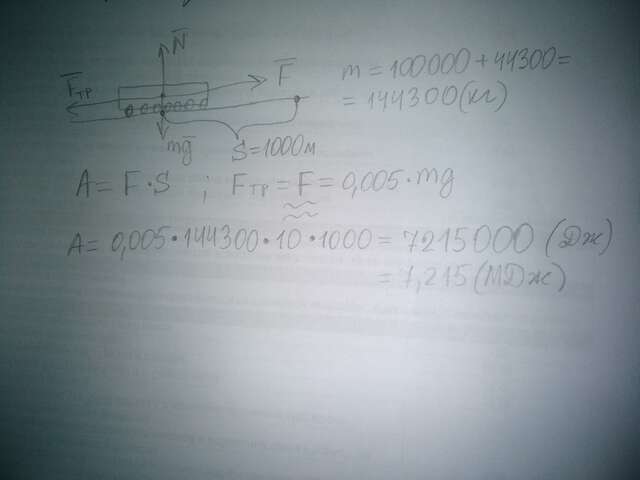 N̅
F̅тр
F̅
mg̅
S=1000м
m = 100000+44300=
= 144300(кг)
A = F·S ; Fтр = F = 0,005·mg
A = 0,005·144300·10·1000 = 7215000 (Дж)
= 7,215(МДж)